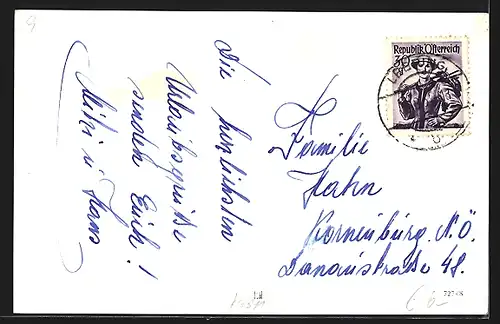 Die herzlichsten
Urlaubsgrüße
senden Euch!
Mitzi u Hans
Republik Österreich
30
Familie
Hahn
Korneuburg. N.Ö.
Donaustraße 48.